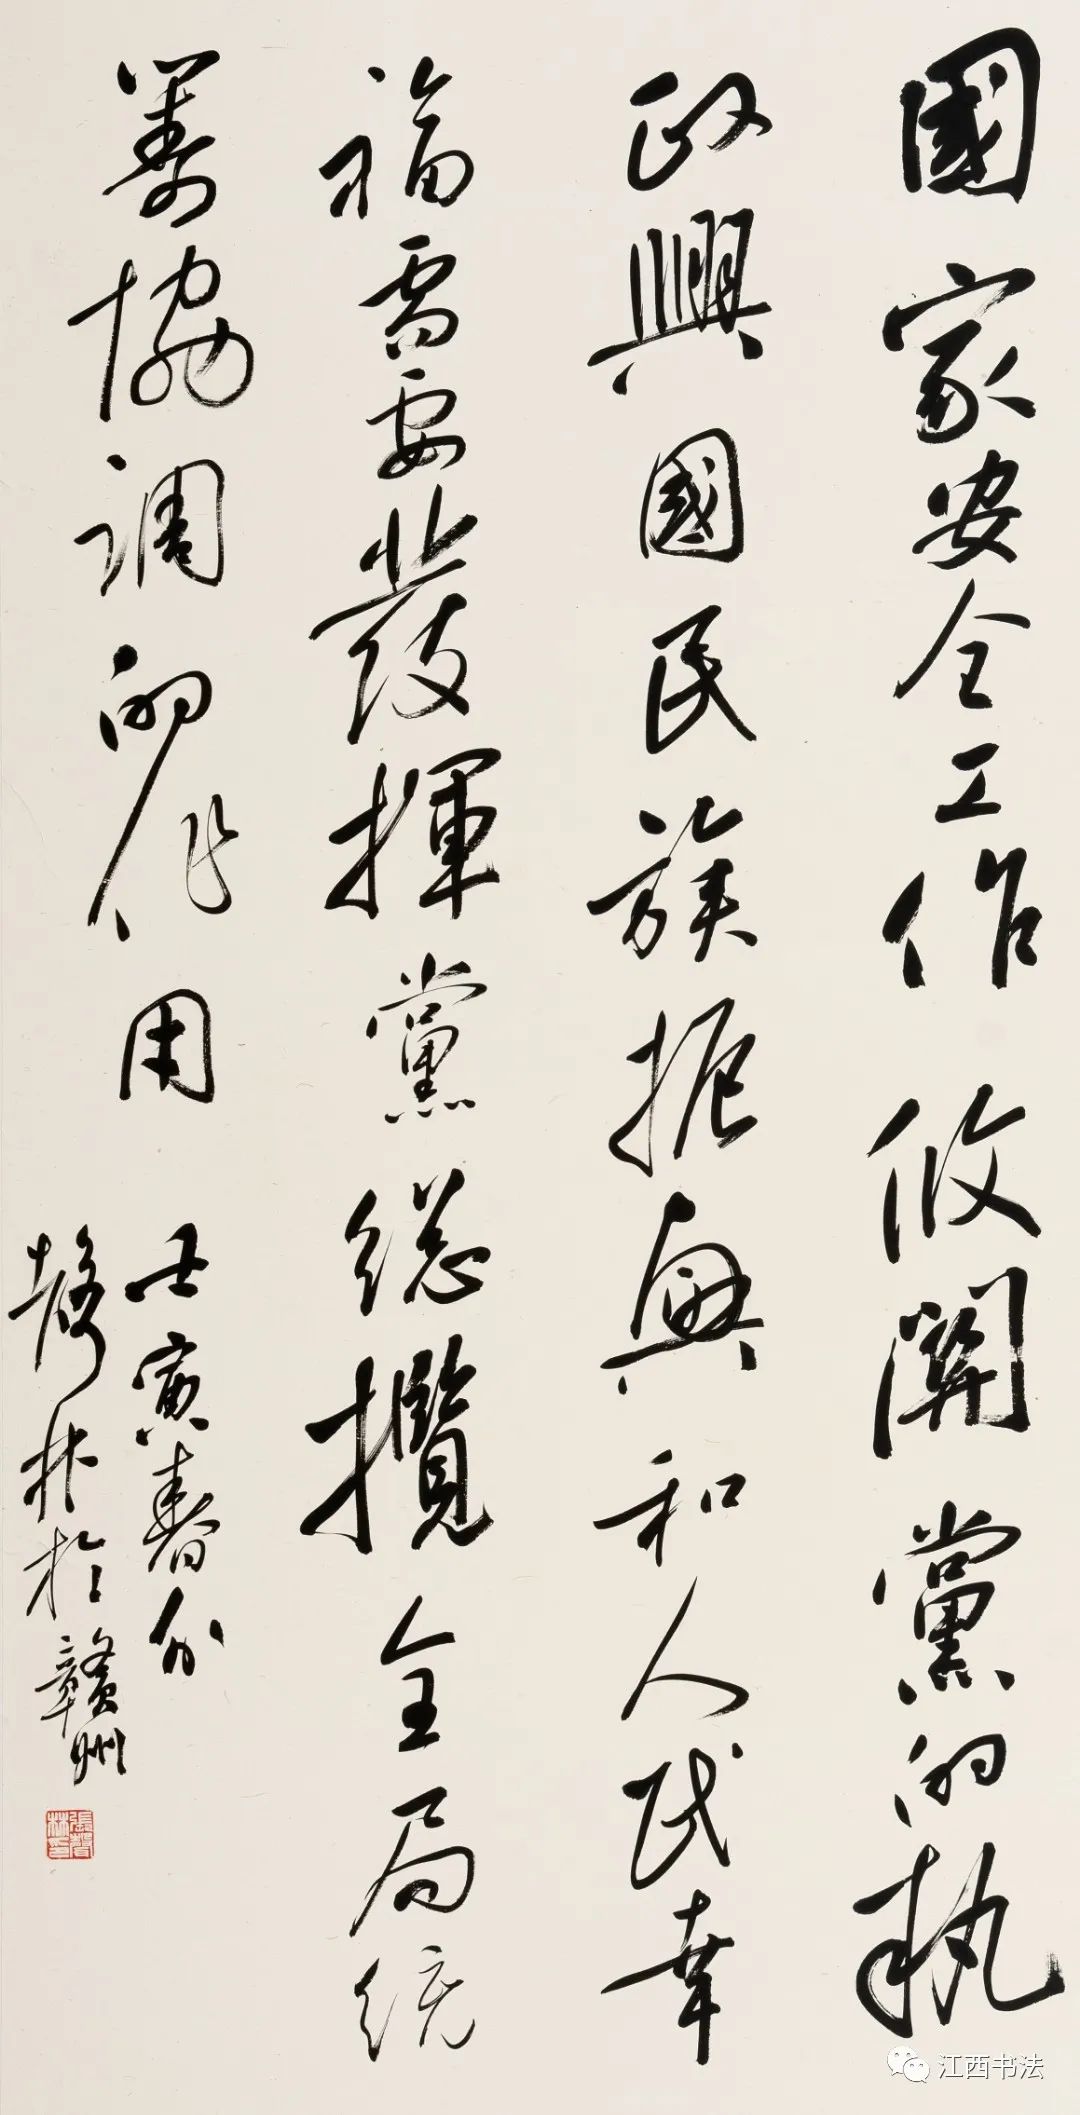 國家安全工作攸關黨的執
政興國民族振興和人民幸
福需要發揮黨總攬全局統
籌協調的作用
壬寅春分
聲林於贛州
張聲林印
江西书法